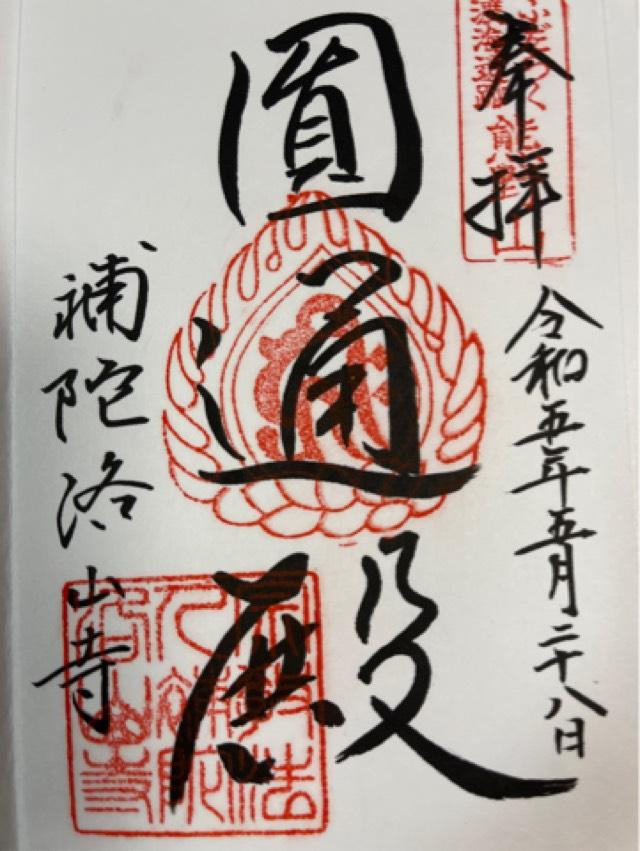 奉拝
令和五年五月二十八日
圓通殿
補陀洛山寺